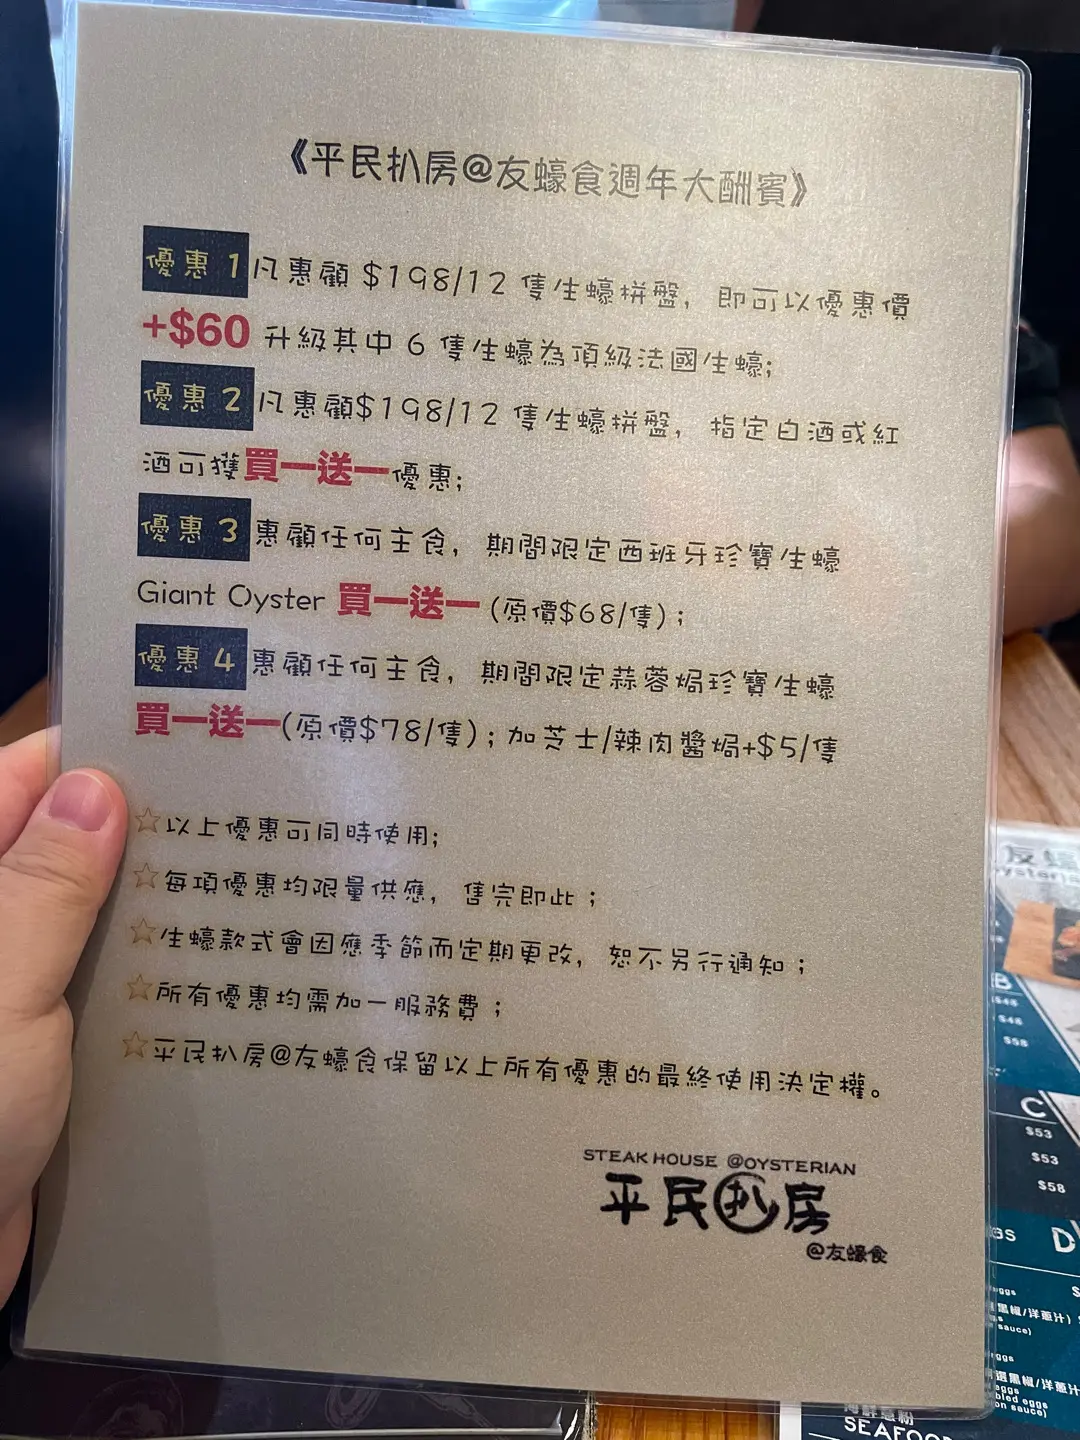 《平民扒房@友蠔食週年大酬賓》
優惠 1 凡惠顧 $198/12 隻生蠔拼盤，即可以優惠價
+$60 升級其中 6 隻生蠔為頂級法國生蠔;
優惠 2 凡惠顧$198/12 隻生蠔拼盤，指定白酒或紅
酒可獲買一送一優惠;
優惠 3 惠顧任何主食，期間限定西班牙珍寶生蠔
Giant Oyster 買一送一 (原價$68/隻)；
優惠 4 惠顧任何主食，期間限定蒜蓉焗珍寶生蠔
買一送一(原價$78/隻)；加芝士/辣肉醬焗+$5/隻
☆以上優惠可同時使用;
☆每項優惠均限量供應，售完即止；
☆生蠔款式會因應季節而定期更改，恕不另行通知；
☆所有優惠均需加一服務費；
☆平民扒房@友蠔食保留以上所有優惠的最終使用決定權。
STEAK HOUSE @OYSTERIAN
平民扒房
@友蠔食
友蠔
B
$48
$48
$58
C
$53
$53
$58
D
eggs
黑椒/洋蔥汁)
sauce)
eggs
黑椒/洋蔥汁
eggs
on sauce)
SEAFOOD